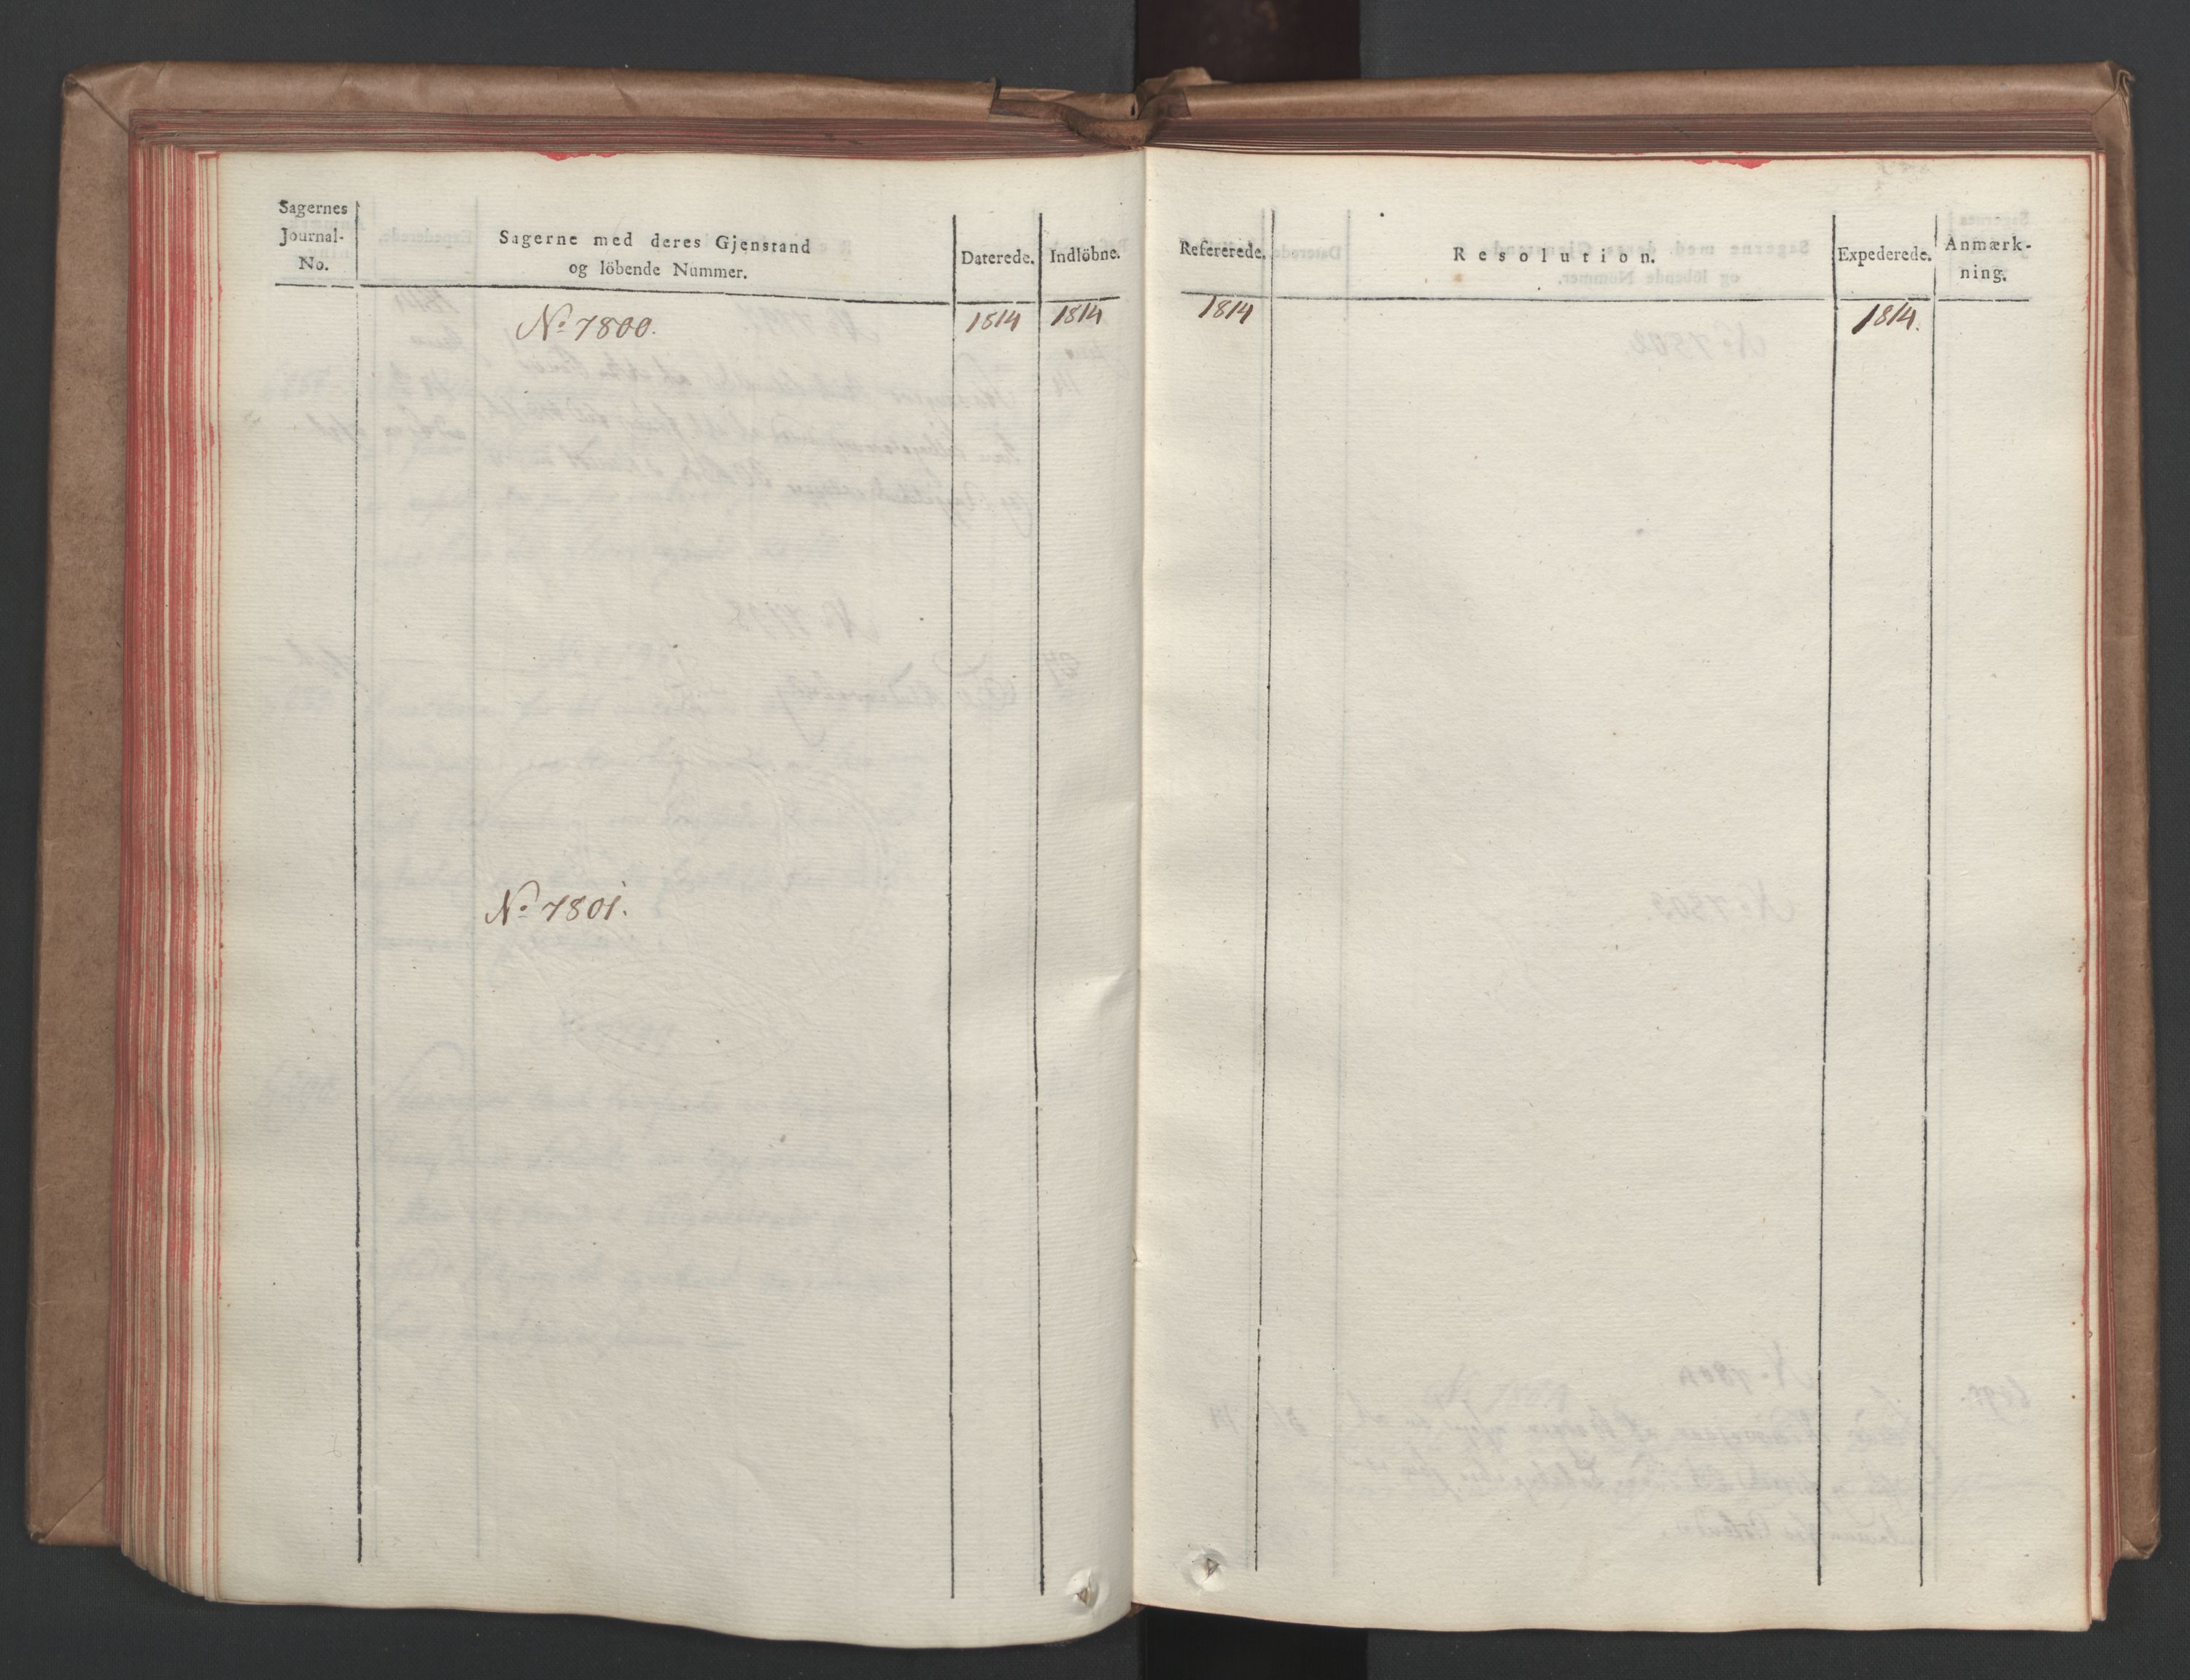 Sagernes
Journal-
No.
Sagerne med deres Gjenstand
og löbende Nummer.
Daterede.
Indlöbne.
Refererede.
Resolution.
Expederede.
Anmærk-
ning.
No 7800.
1814
1814
1814
1814.
No 7801.